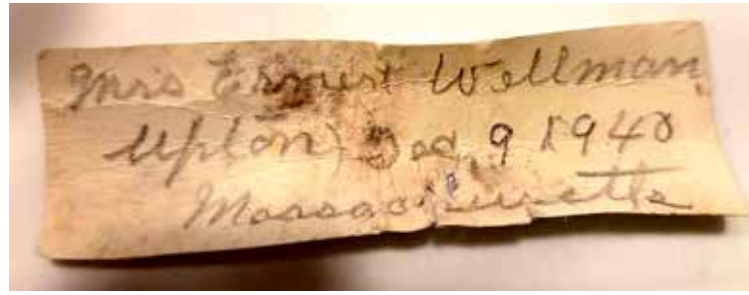 Mrs Ernest Wellman
Upton) Dec, 9 1940
Massachusetts